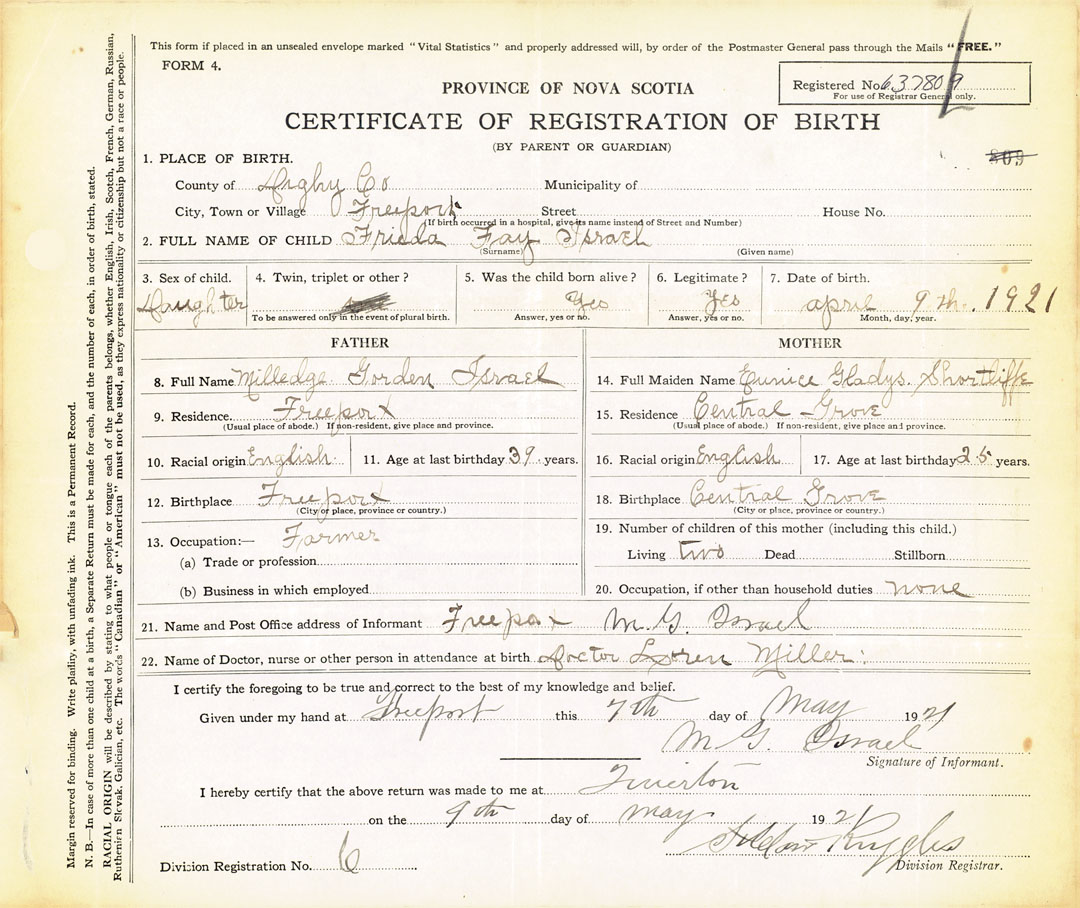 This form if placed in an unsealed envelope marked "Vital Statistics" and properly addressed will, by order of the Postmaster General pass through the Mails "FREE."
FORM 4.
Registered No. 637809
For use of Registrar General only.
PROVINCE OF NOVA SCOTIA
CERTIFICATE OF REGISTRATION OF BIRTH
(BY PARENT OR GUARDIAN)
809
1. PLACE OF BIRTH.
County of Digby Co Municipality of
City, Town or Village Freeport Street House No.
(If birth occurred in a hospital, give its name instead of Street and Number)
2. FULL NAME OF CHILD Frieda Fay Israel
(Surname) (Given name)
3. Sex of child. 4. Twin, triplet or other? 5. Was the child born alive? 6. Legitimate? 7. Date of birth.
Daughter Yes Yes april 9th. 1921
To be answered only in the event of plural birth. Answer, yes or no. Answer, yes or no. Month, day, year.
FATHER
8. Full Name Milledge Gorden Israel
9. Residence. Freeport
(Usual place of abode.) If non-resident, give place and province.
10. Racial origin English 11. Age at last birthday 39. years.
12. Birthplace Freeport
(City or place, province or country.)
13. Occupation:— Farmer
(a) Trade or profession
(b) Business in which employed
MOTHER
14. Full Maiden Name Eunice Gladys. Shortliffe
15. Residence Central Grove
(Usual place of abode.) If non-resident, give place and province.
16. Racial origin English 17. Age at last birthday 25 years.
18. Birthplace Central Grove
(City or place, province or country.)
19. Number of children of this mother (including this child.)
Living two Dead Stillborn
20. Occupation, if other than household duties none
21. Name and Post Office address of Informant Freeport M. G. Israel
22. Name of Doctor, nurse or other person in attendance at birth Doctor Loren Miller.
I certify the foregoing to be true and correct to the best of my knowledge and belief.
Given under my hand at Freeport this 7th day of May 1921
M G. Israel
Signature of Informant.
I hereby certify that the above return was made to me at Tiverton
on the 9th day of may 1921
Ruggles
Division Registration No. 6 Division Registrar.
Margin reserved for binding. Write plainly, with unfading ink. This is a Permanent Record.
N. B.—In case of more than one child at a birth, a Separate Return must be made for each, and the number of each, in order of birth, stated.
RACIAL ORIGIN will be described by stating to what people or tongue each of the parents belongs, whether English, Irish, Scotch, French, German, Russian,
Ruthenian Slovak, Galician, etc. The words "Canadian" or "American" must not be used, as they express nationality or citizenship but not a race or people.